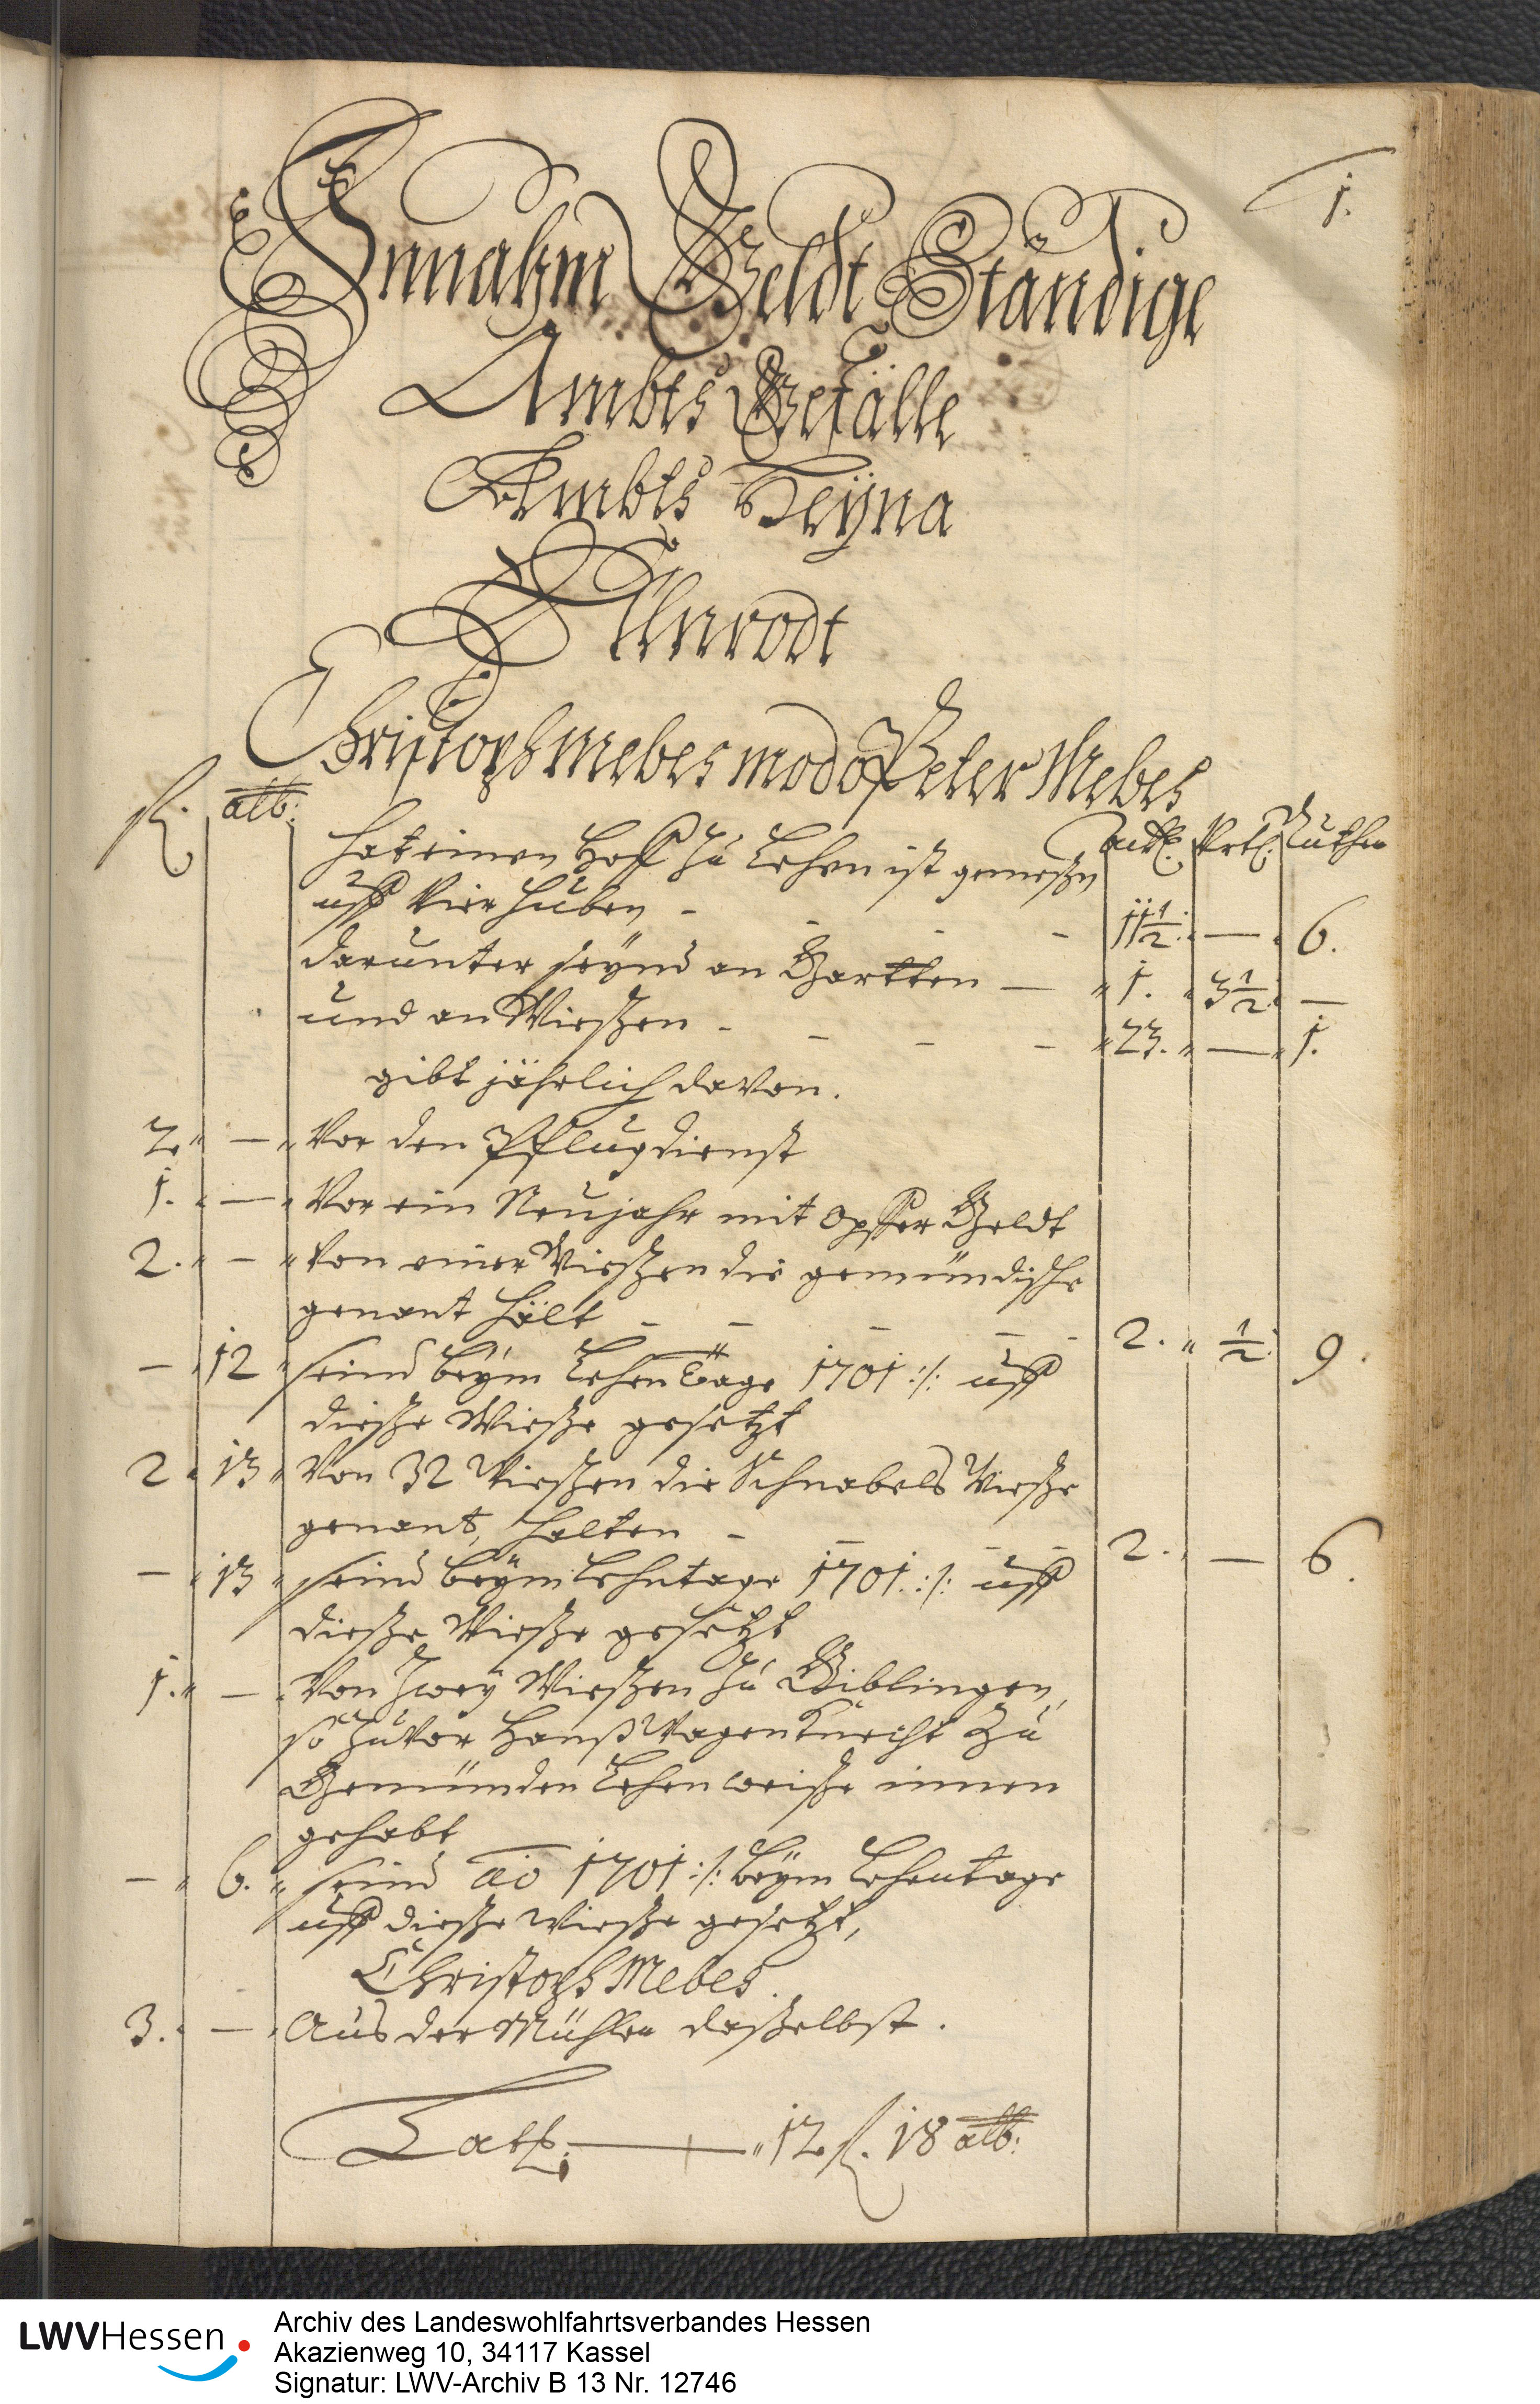 1.
Innahm Geldt Ständige
Ambts Gefälle
Ambts Heÿna
Ellnrodt
Christoph Mebes modo Peter Mebes
fl. alb:
hat einen Hoff zu Lehen ist gemeßen Ack. Vrtl. Ruthen
uff Vier Huben - - - - 11 1/2. — 6.
darunter seÿnd an Gartten — 1. 3 1/2. —
und an Wießen - - - - 23. — 1.
gibt jährlich davon.
2. — Vor den Pflugdienst
1. — Vor ein Neujahr mit opffer Geldt
2. — Von einer Wießen die gemündische
genant hält - - - - - 2. 1/2. 9.
— 12 seind beÿm Lehen Tage 1701 :/: uff
dieße Wieße gesetzt
2 13 Von 32 Wießen die Schnabels Wieße
genant, halten - - - - 2. — 6.
— 13 seind beÿm Lehntage 1701 :/: uff
dieße Wieße gesetzt
1. — Von Zweÿ Wießen zu Giblingen,
so zuvor Hanß Wagenknecht zu
Gemünden Lehenweiße innen
gehabt
— 6. seind ao 1701 :/: beÿm Lehentage
uff dieße Wieße gesetzt,
Christoph Mebes.
3. — Aus der Mühlen daßelbst.
Lats. — 12 fl. 18 alb:
LWVHessen
Archiv des Landeswohlfahrtsverbandes Hessen
Akazienweg 10, 34117 Kassel
Signatur: LWV-Archiv B 13 Nr. 12746